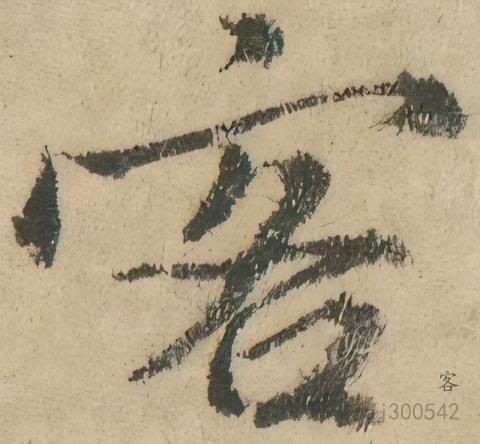 客
客
j300542